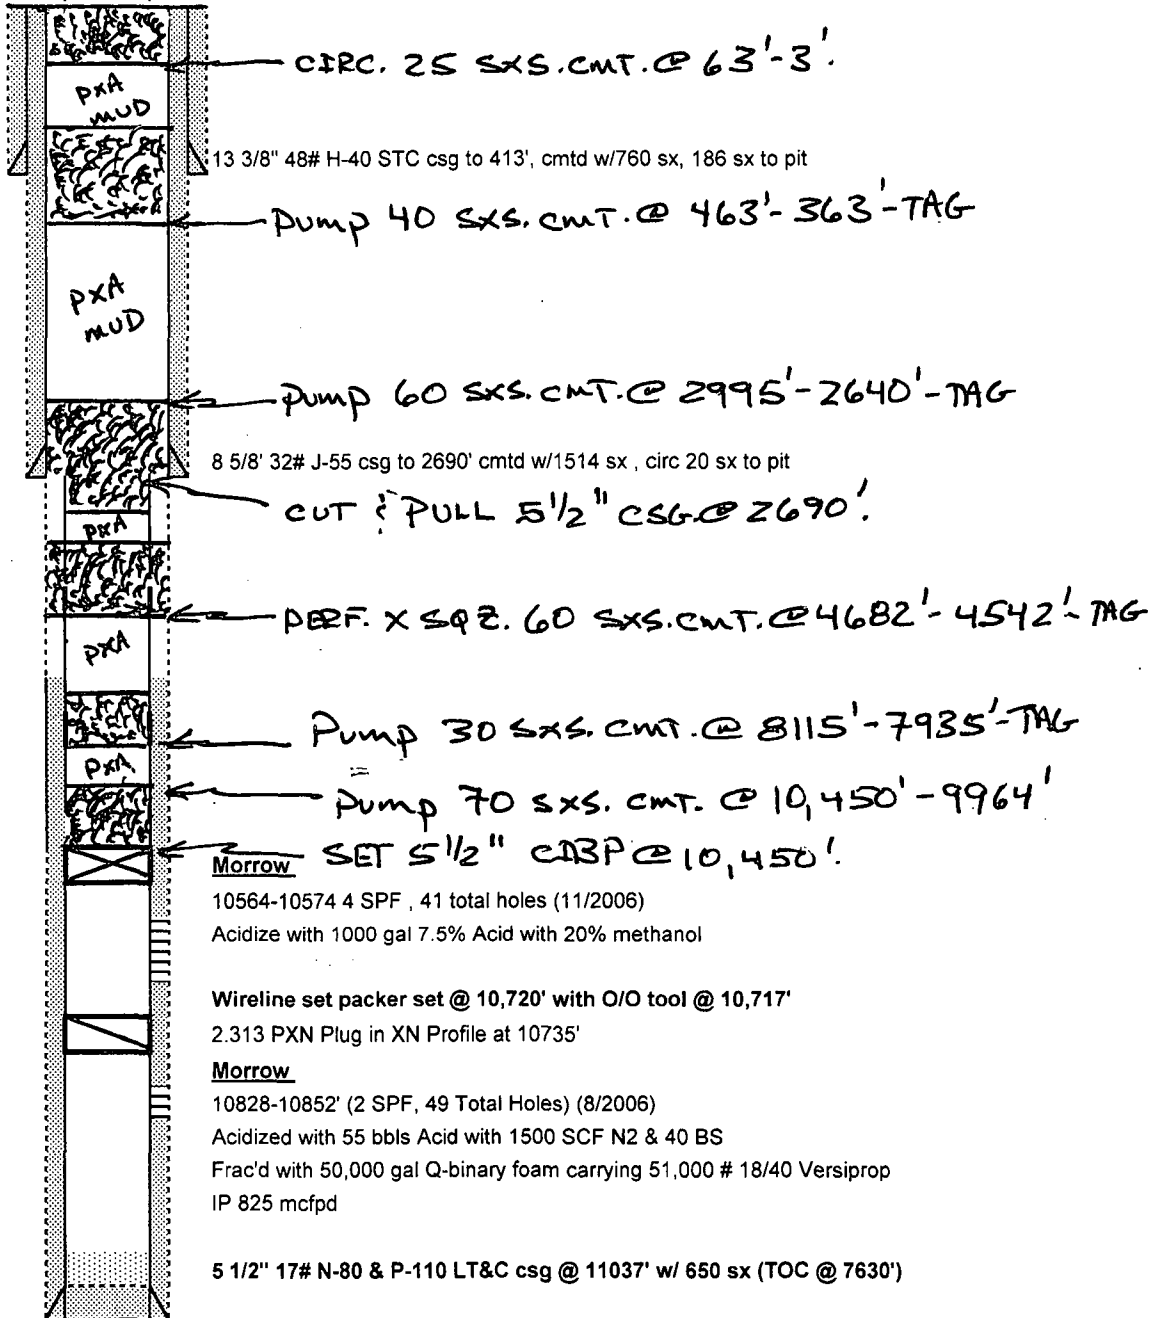 CIRC. 25 SXS. CMT. @ 63'-3'.
PXA
MUD
13 3/8" 48# H-40 STC csg to 413', cmtd w/760 sx, 186 sx to pit
PUMP 40 SXS. CMT. @ 463'-363'-TAG
PXA
MUD
PUMP 60 SXS. CMT. @ 2995'-2640'-TAG
8 5/8' 32# J-55 csg to 2690' cmtd w/1514 sx , circ 20 sx to pit
CUT & PULL 5 1/2" CSG. @ 2690'.
PXA
PERF. X SQZ. 60 SXS. CMT. @ 4682'-4542'-TAG
PXA
PUMP 30 SXS. CMT. @ 8115'-7935'-TAG
PXA
PUMP 70 SXS. CMT. @ 10,450'-9964'
SET 5 1/2" CIBP @ 10,450'.
Morrow
10564-10574 4 SPF , 41 total holes (11/2006)
Acidize with 1000 gal 7.5% Acid with 20% methanol
Wireline set packer set @ 10,720' with O/O tool @ 10,717'
2.313 PXN Plug in XN Profile at 10735'
Morrow
10828-10852' (2 SPF, 49 Total Holes) (8/2006)
Acidized with 55 bbls Acid with 1500 SCF N2 & 40 BS
Frac'd with 50,000 gal Q-binary foam carrying 51,000 # 18/40 Versiprop
IP 825 mcfpd
5 1/2" 17# N-80 & P-110 LT&C csg @ 11037' w/ 650 sx (TOC @ 7630')